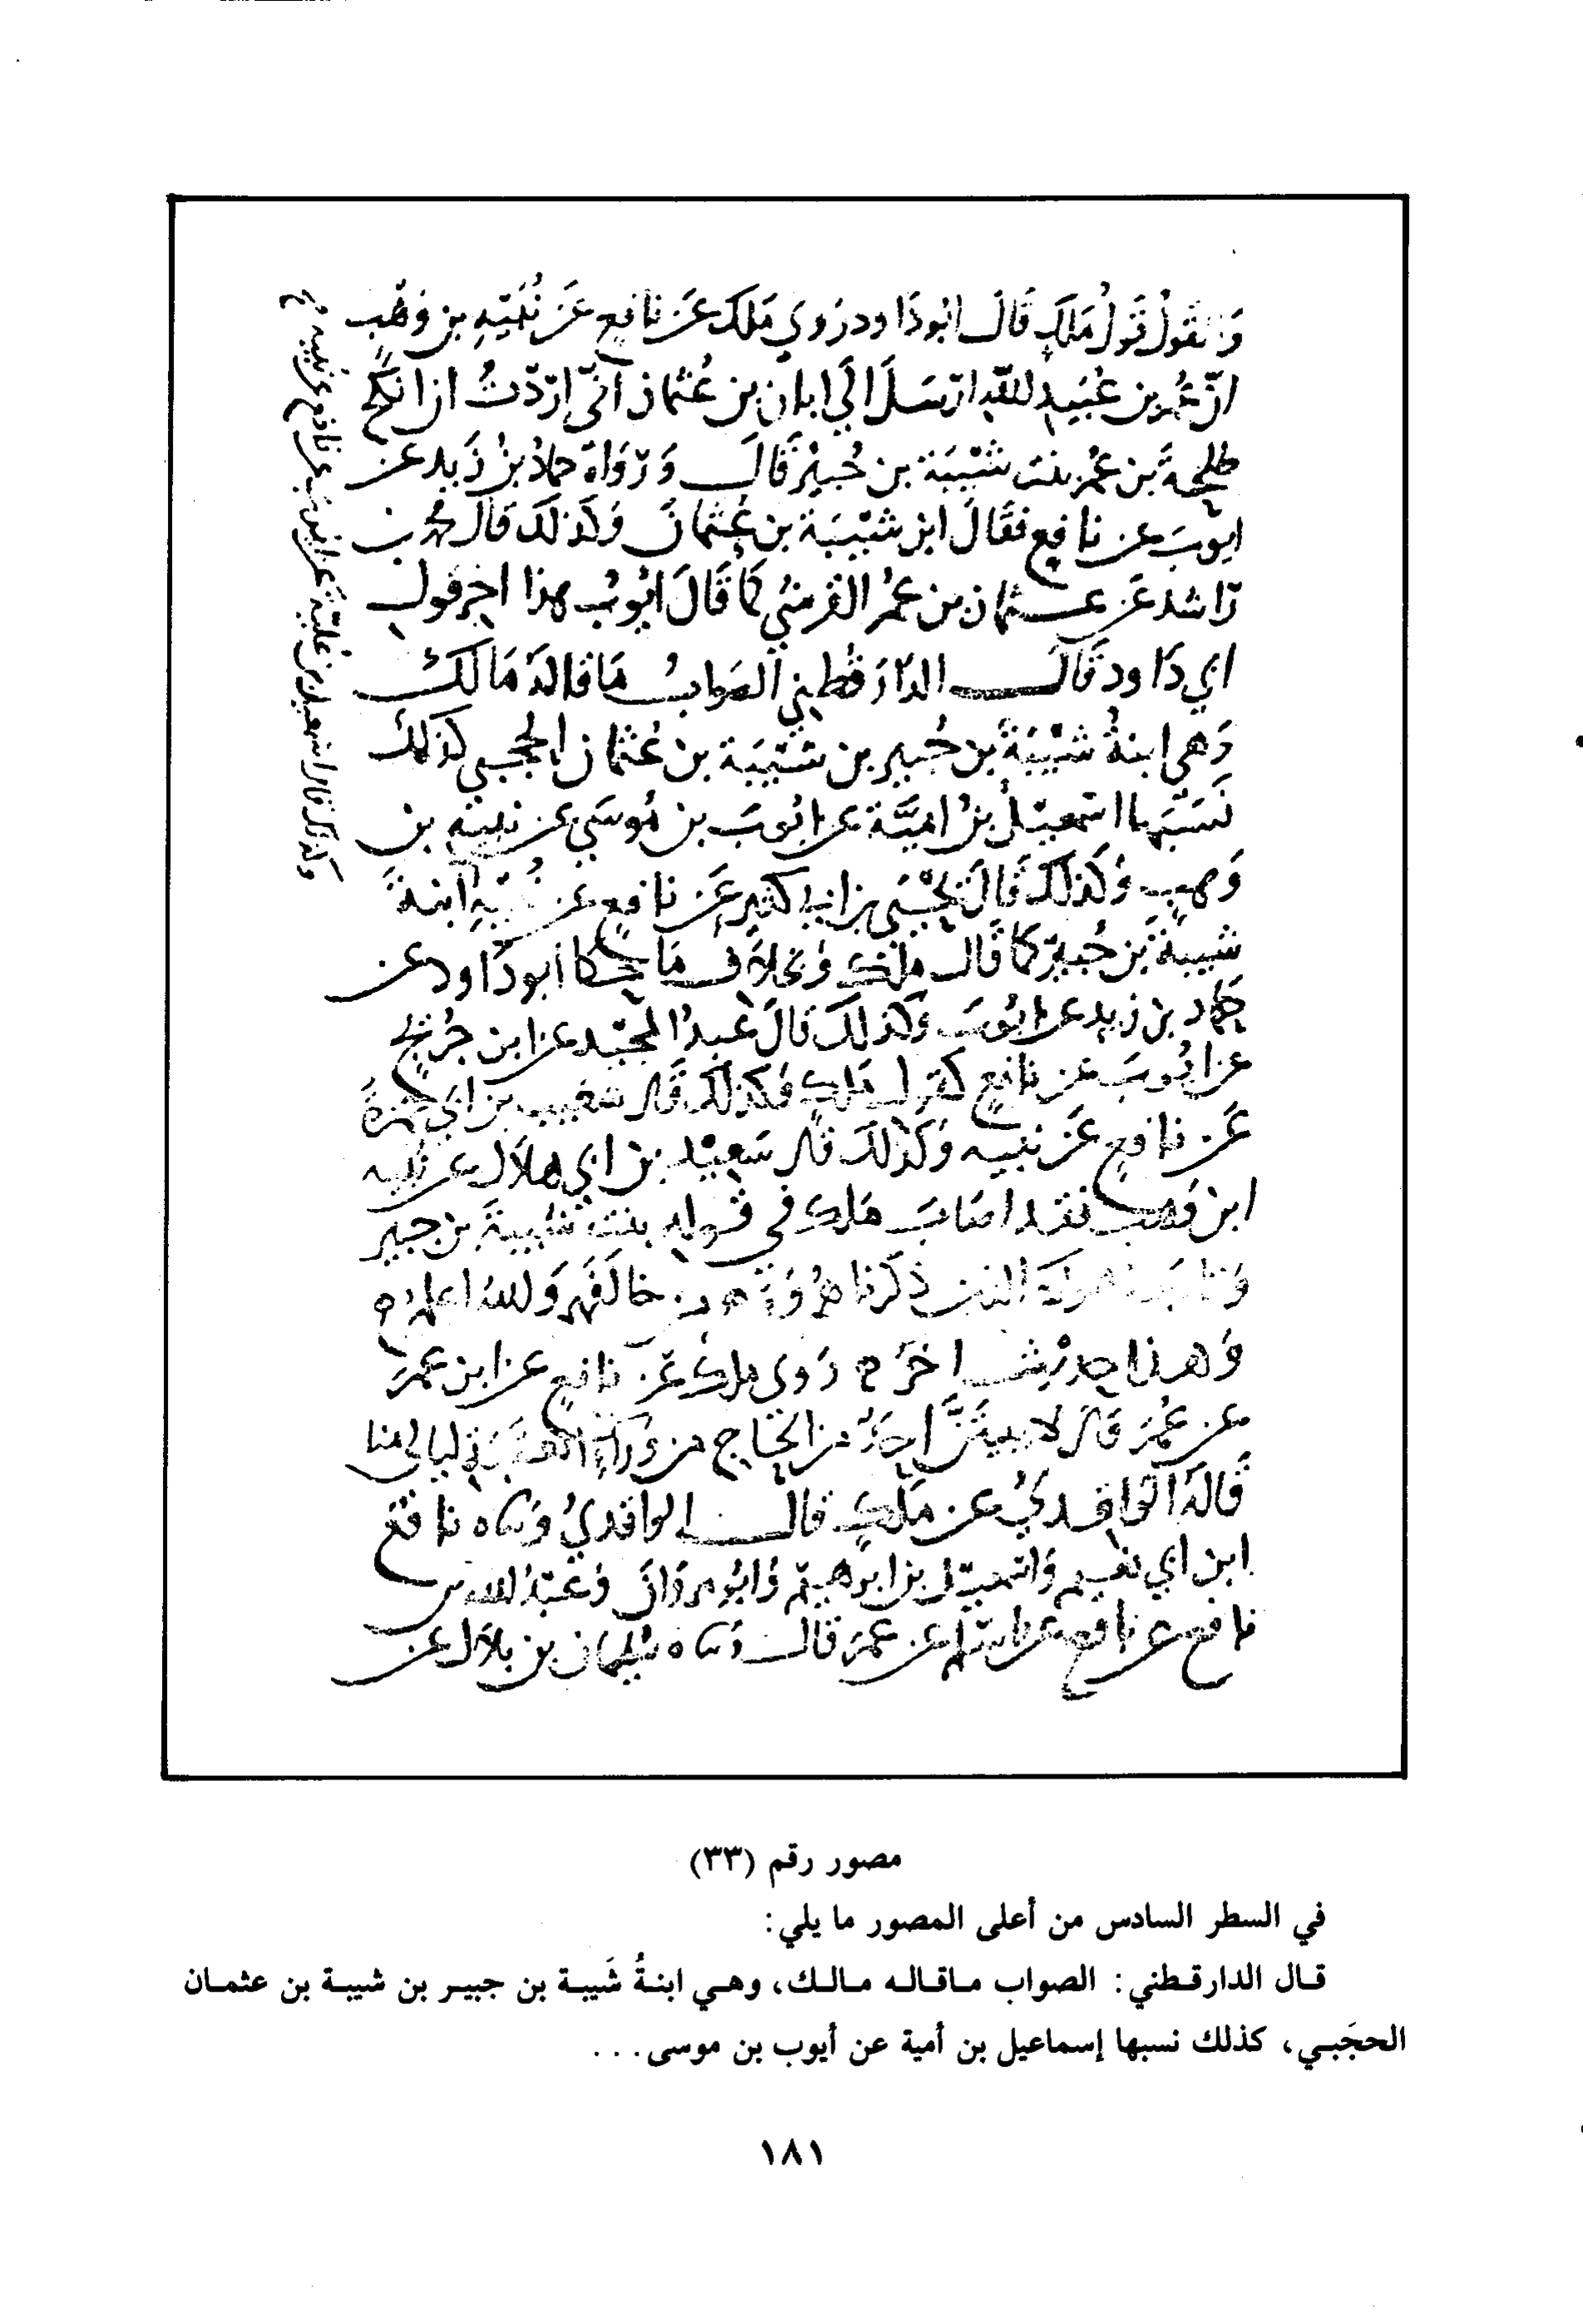 والقول قول ملك قال ابو داود روي ملك عن نافع عن نبيه بن وهب
ان عمر بن عبيد الله ارسل الي ابان بن عثمان اني اردت ان انكح
طلحة بن عمر بنت شيبة بن جبير قال ورواه حماد بن زيد عن
ايوب عن نافع فقال ابن شيبة بن عثمان وكذلك قال محمد بن
راشد عن عثمان بن عمر القرشي كما قال ايوب هذا اخر قول
ابي داود قال الدارقطني الصواب ما قاله مالك
وهي ابنة شيبة بن جبير بن شيبة بن عثمان الحجبي كذلك
نسبها اسمعيل بن امية عن ايوب بن موسي عن نبيه بن
وهب وكذلك قال يحيى بن ابي كثير عن نافع عن نبيه ابنة
شيبة بن جبير كما قال ملك وبخلاف ما حكا ابو داود عن
حماد بن زيد عن ايوب وكذلك قال عبد المجيد عن ابن جريج
عن ايوب عن نافع كقول ملك وكذلك قال شعيب بن ابي حمزة
عن نافع عن نبيه وكذلك قال سعيد بن ابي هلال عن نبيه
ابن وهب فقد اصاب ملك في قوله بنت شيبة بن جبير
الذين ذكرناهم خالفهم والله اعلم ه
وهذا حديث اخر ه روى ملك عن نافع عن ابن عمر
عن عمر قال لا يبيتن احد من الحاج من وراء العقبة ليالي منا
قاله الواقدي عن ملك قال الواقدي و نافع
ابن ابي نعيم واسمعيل بن ابرهيم وابو مروان وعبد الله بن
نافع عن نافع عن اسلم عن عمر قال و سليمن بن بلال عن
وكذلك قال اسمعيل بن علية عن ايوب عن نافع عن نبيه
مصور رقم (٣٣)
في السطر السادس من أعلى المصور ما يلي:
قال الدارقطني: الصواب ماقاله مالك، وهي ابنةُ شَيبة بن جبير بن شيبة بن عثمان
الحجَبي، كذلك نسبها إسماعيل بن أمية عن أيوب بن موسى...
١٨١